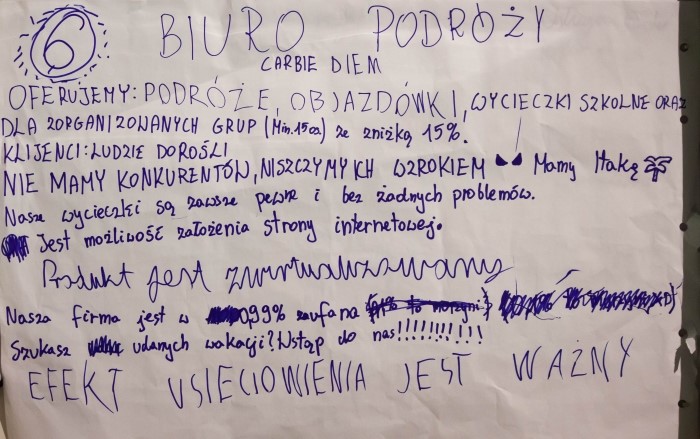 6 BIURO PODRÓŻY
CARBIE DIEM
OFERUJEMY: PODRÓŻE, OBJAZDÓWKI, WYCIECZKI SZKOLNE ORAZ
DLA ZORGANIZOWANYCH GRUP (Min. 15os) ze zniżką 15%.
KLIJENCI: LUDZIE DOROŚLI
NIE MAMY KONKURENTÓW, NISZCZYMY ICH WZROKIEM Mamy Itakę
Nasze wycieczki są zawsze pewne i bez żadnych problemów.
Jest możliwość założenia strony internetowej.
Produkt jest zwirtualizowany
Nasza firma jest w 0,99% zaufana
Szukasz udanych wakacji? Wstąp do nas!!!!!!!!!!
EFEKT USIECIOWIENIA JEST WAŻNY